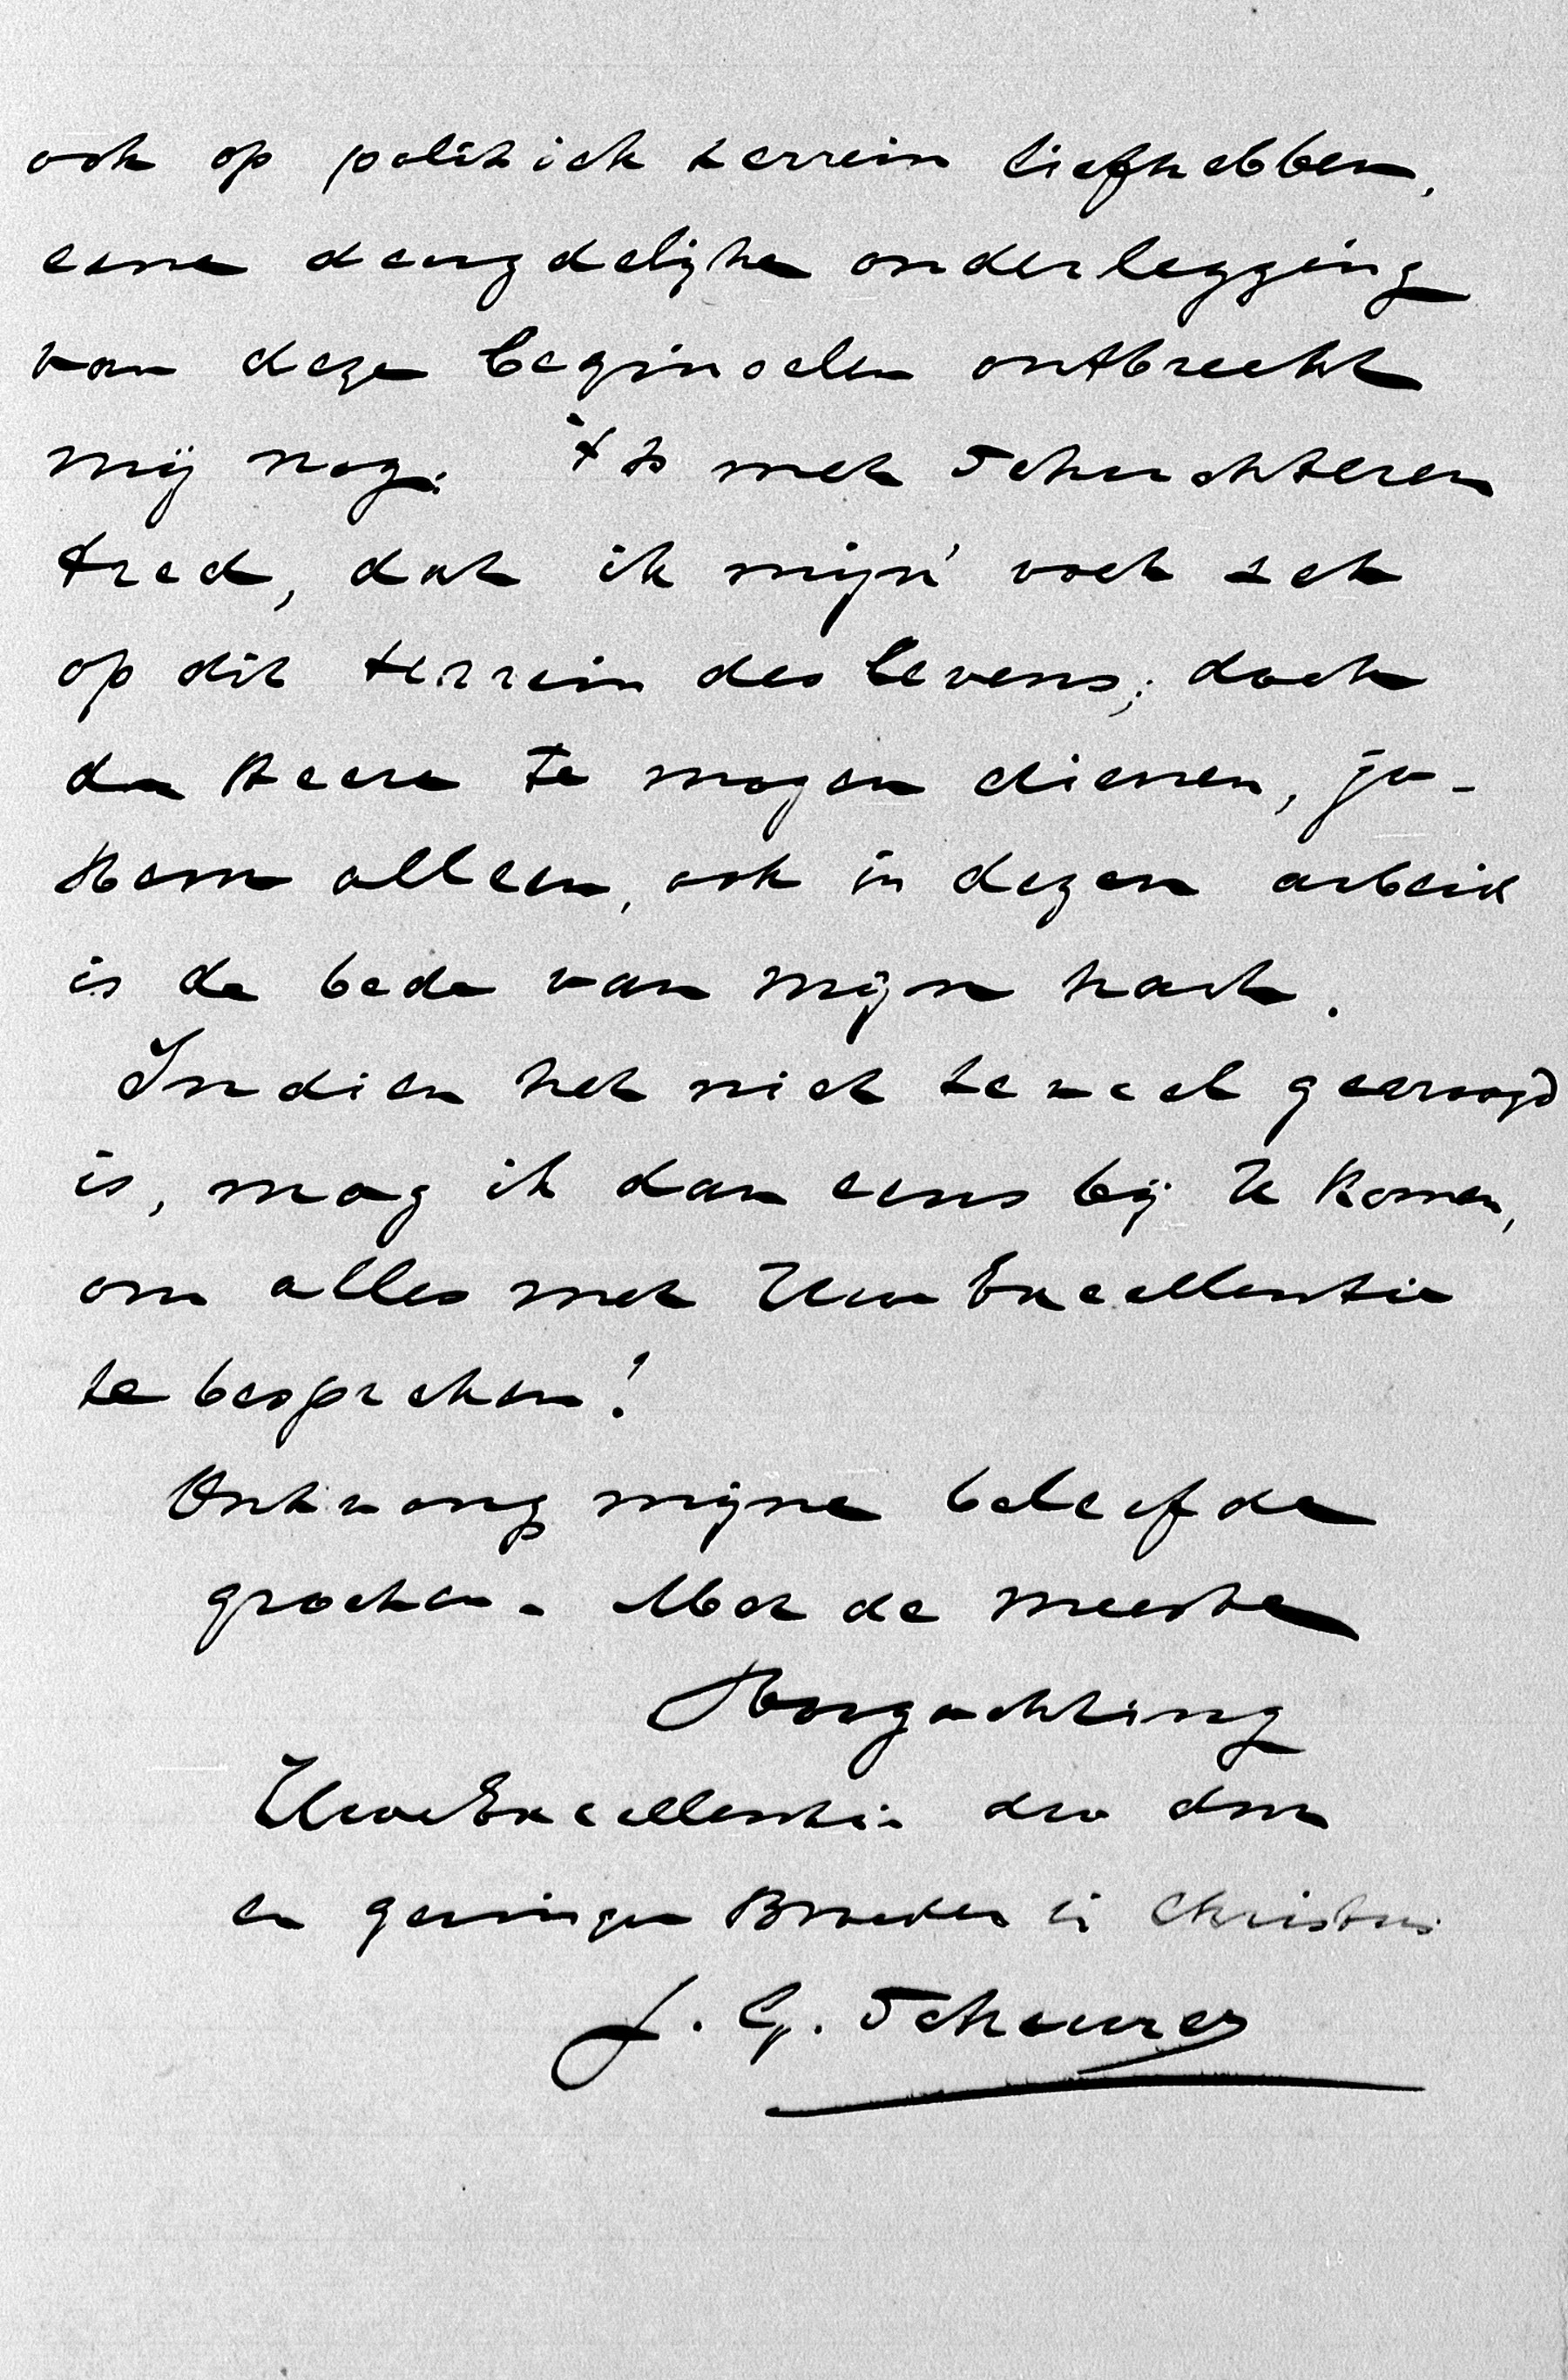 ook op politiek terrein liefhebben,
eene deugdelijke onderlegging
van deze beginselen ontbreekt
mij nog. 't Is met schuchteren
tred, dat ik mijn' voet zet
op dit terrein des levens; doch
den Heere te mogen dienen, ja -
Hem alleen, ook in dezen arbeid
is de bede van mijn hart.
Indien het niet te veel gevraagd
is, mag ik dan eens bij U komen,
om alles met Uwe Excellentie
te bespreken?
Ontvang mijne beleefde
groeten. Met de meeste
Hoogachting
Uwe Excellentie's dw dnr
en geringe Broeder in Christus
J. G. Scheurer